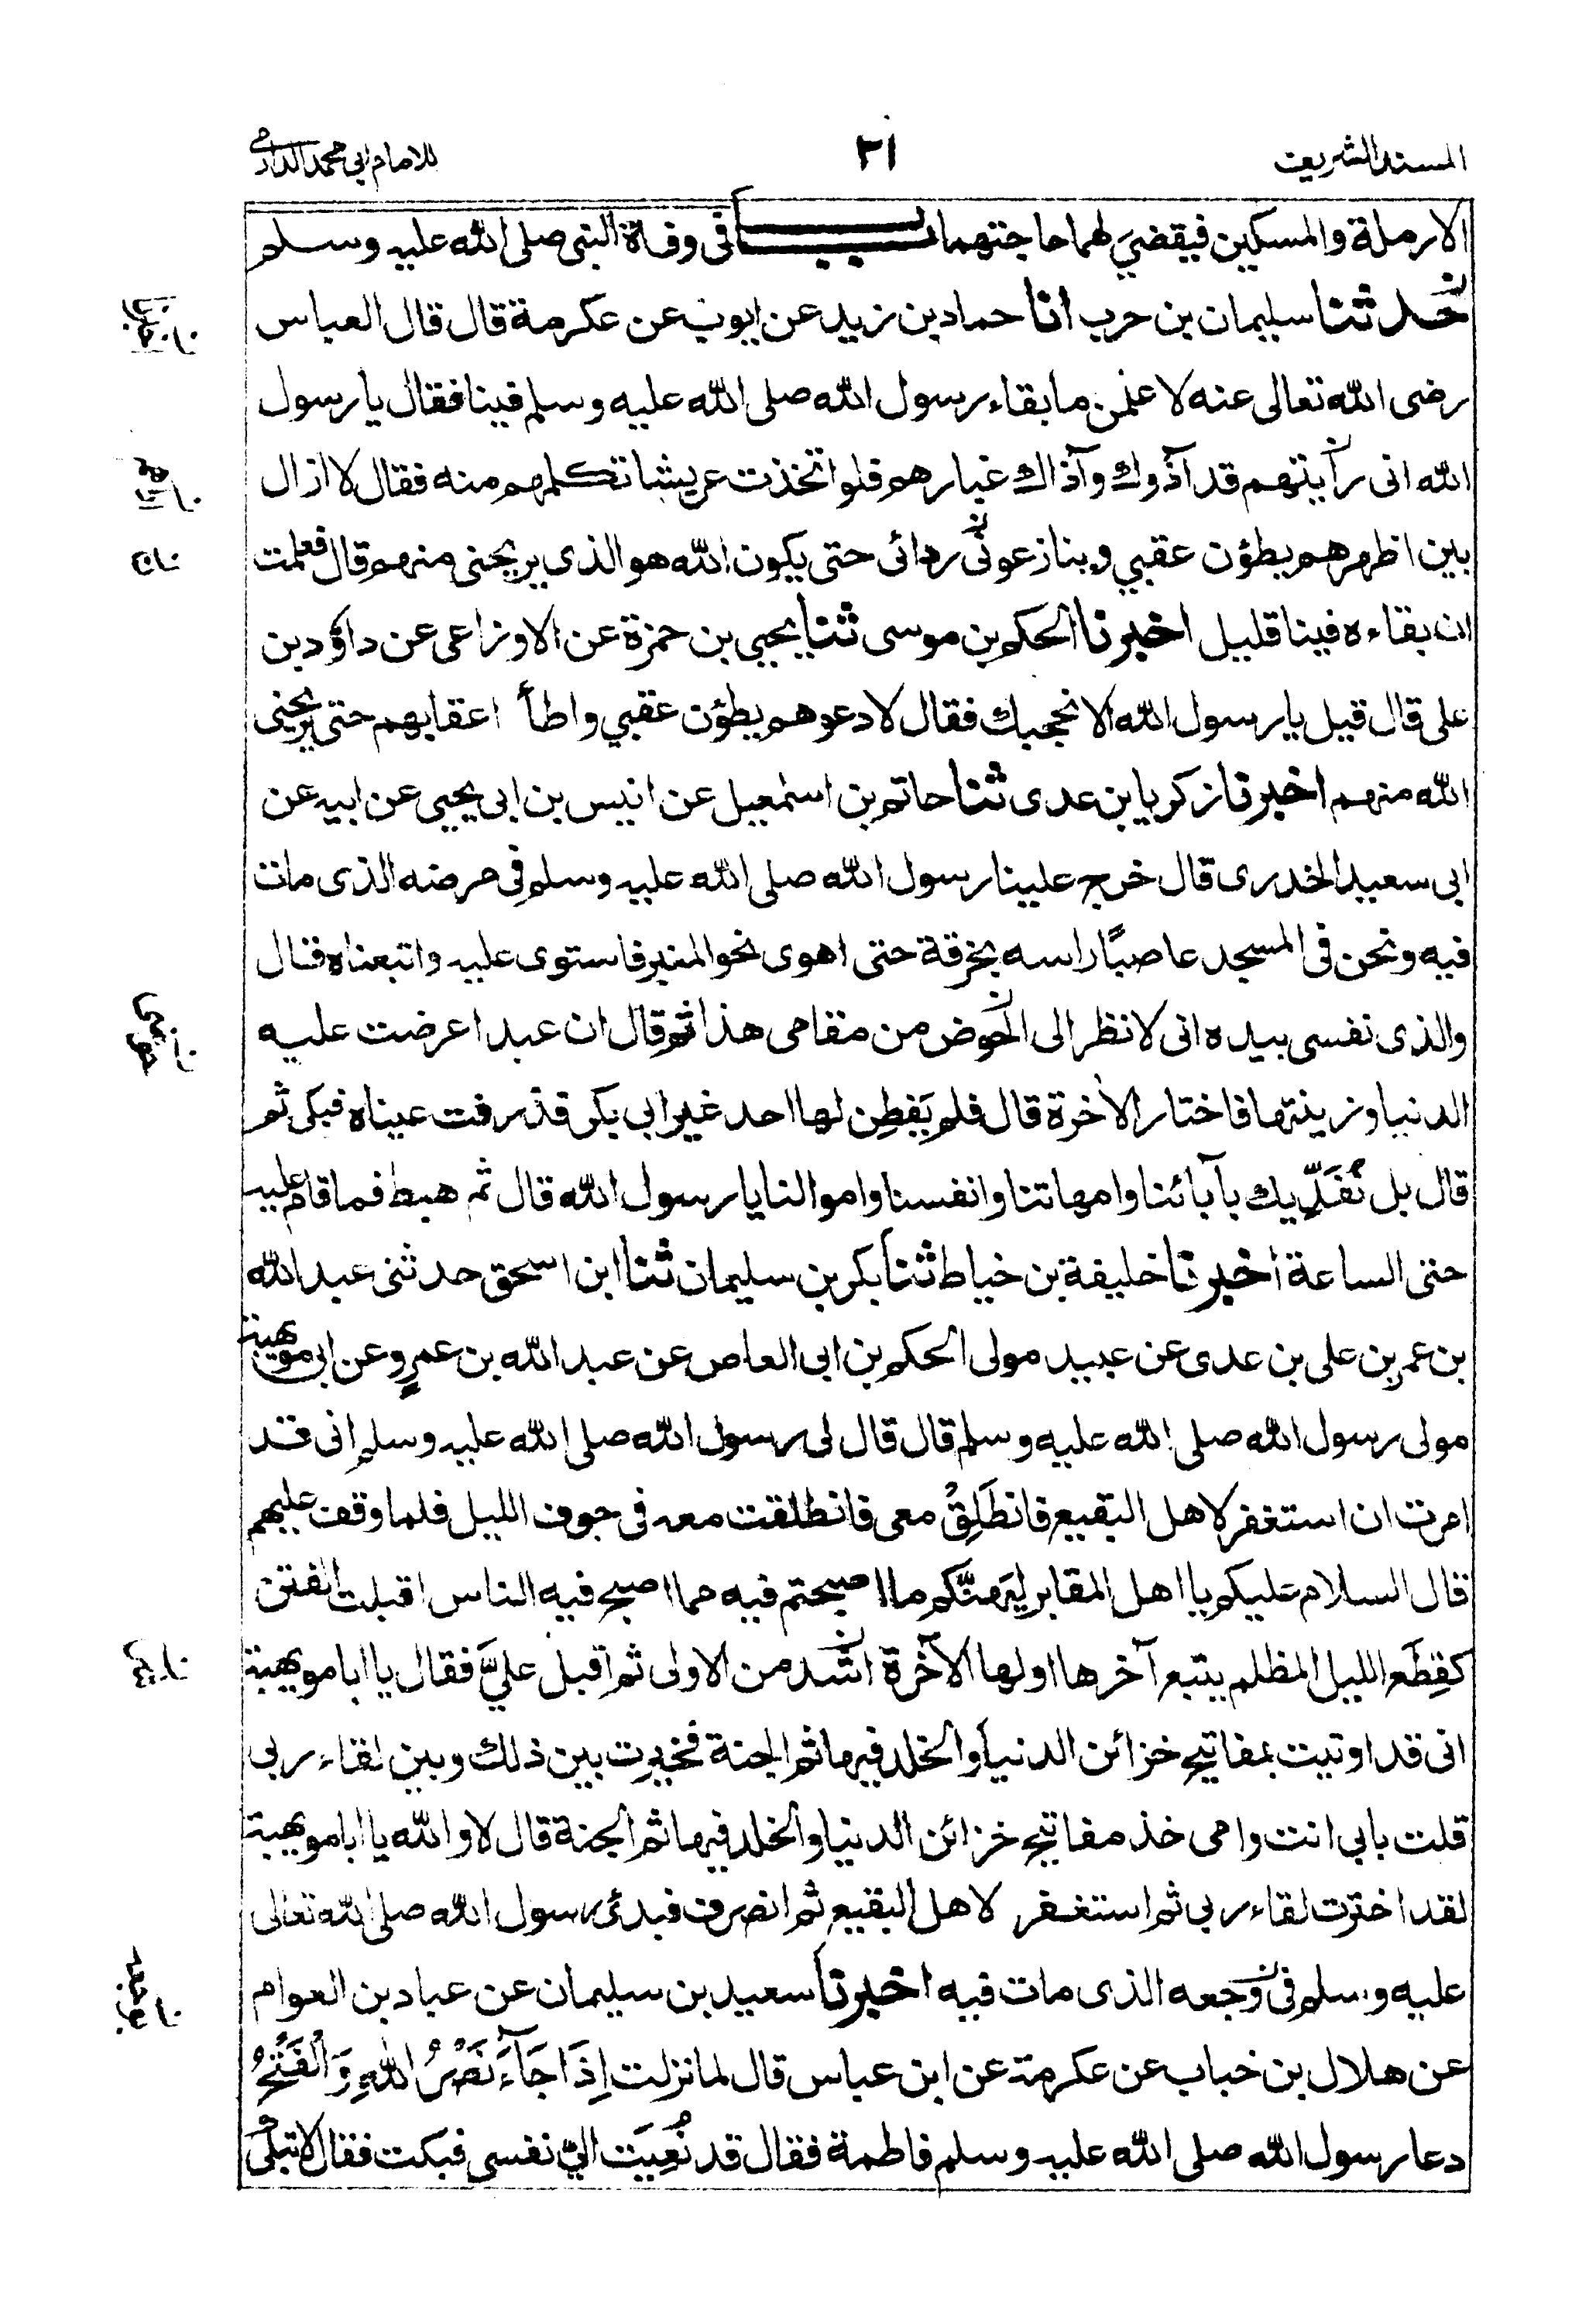 المسند الشريف
٢١
للامام ابي محمد الدارمي
الارملة والمسكين فيقضي لهما حاجتهما باب فى وفاة النبى صلى الله عليه وسلم
حدثنا سليمان بن حرب انا حماد بن زيد عن ايوب عن عكرمة قال قال العباس
رضى الله تعالى عنه لاعلمن ما بقاء رسول الله صلى الله عليه وسلم فينا فقال يا رسول
الله انى رأيتهم قد آذوك وآذاك غبارهم فلو اتخذت عريشا تكلمهم منه فقال لا ازال
بين اظهرهم يطؤن عقبي وينازعونى ردائى حتى يكون الله هو الذى يريحنى منهم قال فعلمت
ان بقاءه فينا قليل اخبرنا الحكم بن موسى ثنا يحيي بن حمزة عن الاوزاعى عن داؤد بن
على قال قيل يا رسول الله الا نحجبك فقال لا دعوهم يطؤن عقبي واطأ اعقابهم حتى يريحنى
الله منهم اخبرنا زكريا بن عدى ثنا حاتم بن اسمعيل عن انيس بن ابى يحيي عن ابيه عن
ابى سعيد الخدرى قال خرج علينا رسول الله صلى الله عليه وسلم فى مرضه الذى مات
فيه ونحن فى المسجد عاصبًا راسه بخرقة حتى اهوى نحو المنبر فاستوى عليه واتبعناه قال
والذى نفسى بيده انى لانظر الى الحوض من مقامى هذا ثم قال ان عبدا عرضت عليه
الدنيا وزينتها فاختار الاخرة قال فلم يَفطِن لها احد غير ابى بكر فذرفت عيناه فبكى ثم
قال بل نُفَدِّيك بآبائنا وامهاتنا وانفسنا واموالنا يا رسول الله قال ثم هبط فما قام عليه
حتى الساعة اخبرنا خليفة بن خياط ثنا بكر بن سليمان ثنا ابن اسحق حدثنى عبد الله
بن عمر بن على بن عدى عن عبيد مولى الحكم بن ابى العاص عن عبد الله بن عمرٍو عن ابى مويهبة
مولى رسول الله صلى الله عليه وسلم قال قال لى رسول الله صلى الله عليه وسلم انى قد
امرت ان استغفر لاهل البقيع فانطَلِقْ معى فانطلقت معه فى جوف الليل فلما وقف عليهم
قال السلام عليكم يا اهل المقابر ليَهنَّكم ما اصبحتم فيه مما اصبح فيه الناس اقبلت الفتن
كقِطَع الليل المظلم يتبع آخرها اولها الآخرة اشد من الاولى ثم اقبل عليَّ فقال يا ابا مويهبة
انى قد اوتيت بمفاتيح خزائن الدنيا والخلد فيها ثم الجنة فخيرت بين ذلك وبين لقاء ربى
قلت بابى انت وامى خذ مفاتيح خزائن الدنيا والخلد فيها ثم الجنة قال لا والله يا ابا مويهبة
لقد اخترت لقاء ربى ثم استغفر لاهل البقيع ثم انصرف فبدئ رسول الله صلى الله تعالى
عليه وسلم فى وجعه الذى مات فيه اخبرنا سعيد بن سليمان عن عباد بن العوام
عن هلال بن خباب عن عكرمة عن ابن عباس قال لما نزلت اِذَا جَآءَ نَصْرُ اللّٰهِ وَالْفَتْحُ
دعا رسول الله صلى الله عليه وسلم فاطمة فقال قد نُعِيَت اليّ نفسى فبكت فقال لا تبكى